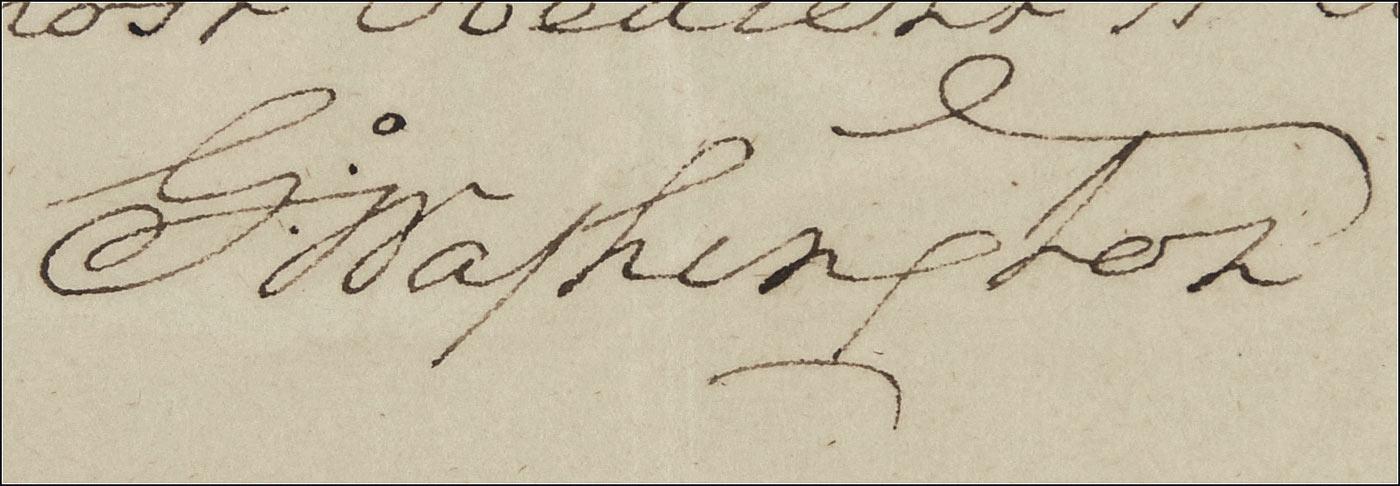 most obedient
Go: Washington